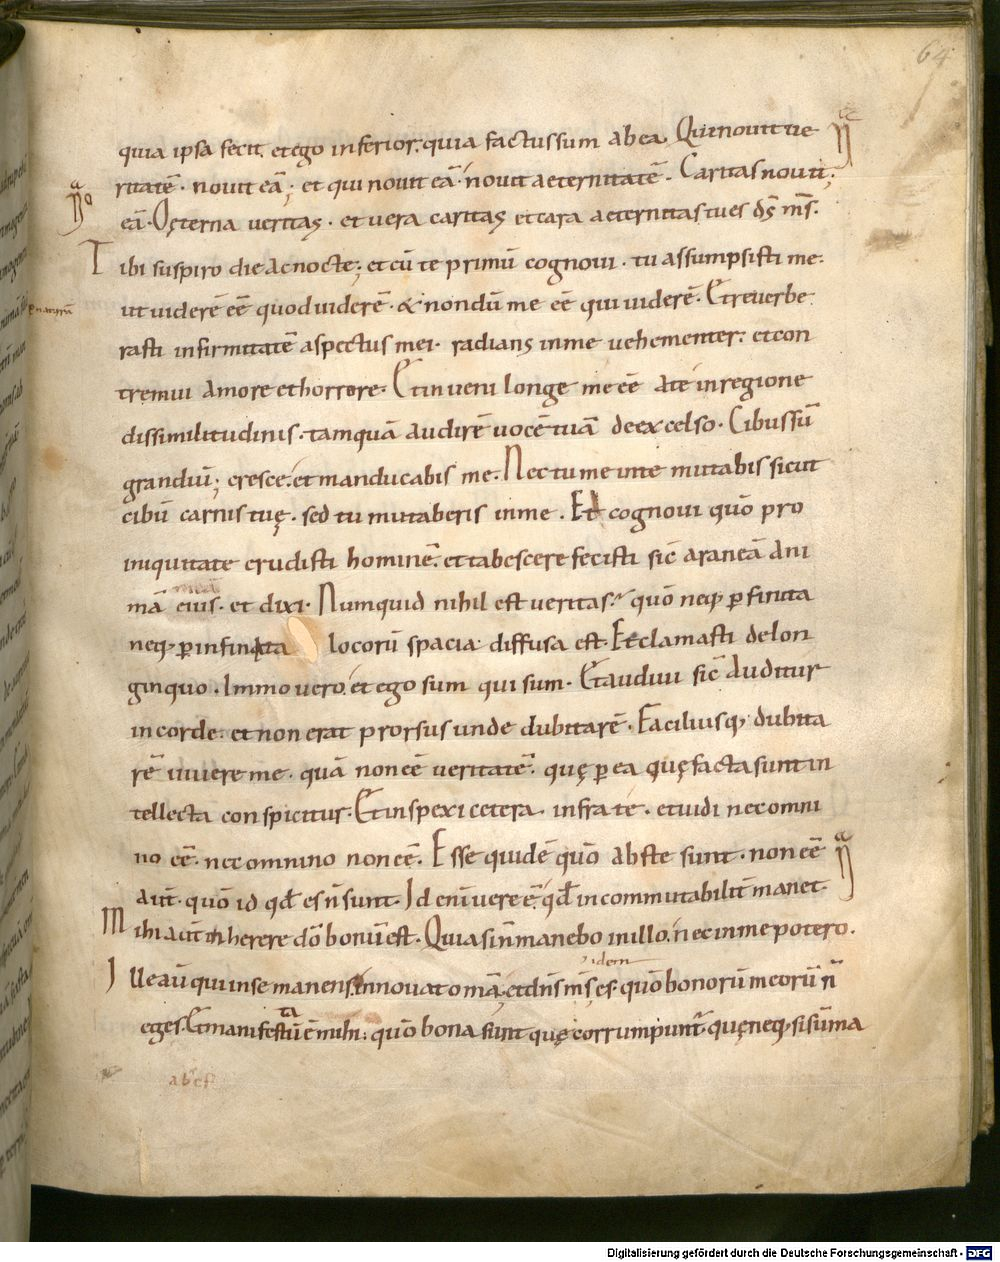 64
quia ipsa fecit. et ego inferior. quia factus sum ab ea. Qui nouit ue
ritatē · nouit eā ; et qui nouit eā · nouit aeternitatē . Caritas nouit ;
eā . O ęterna veritas . et uera caritas et cara aeternitas tu es ds̄ ms̄ .
Tibi suspiro die ac nocte ; et cū te primū cognoui . tu assumpsisti me .
ut uiderē eē quod uiderē . & nondū me eē qui uiderē . Et reuerbe
rasti infirmitatē aspectus mei . radians in me uehementer . et con
tremui amore et horrore . Et inueni longe me eē a te in regione
dissimilitudinis . tamquā audirē uocē tuā de excelso . Cibus sū
grandiū ; cresce . et manducabis me . Nec tu me in te mutabis sicut
cibū carnis tuę . sed tu mutaberis in me . Et cognoui quō pro
iniquitate erudisti hominē . et tabescere fecisti sic̄ araneā ani
meā
mā eius . et dixi . Numquid nihil est ueritas . quō neq; p̱ finita
neq; p̱ infinita locorū spacia diffusa est . Et clamasti de lon
ginquo . Immo uero . et ego sum qui sum . Et audiui sic̄ auditur
in corde . et non erat prorsus unde dubitarē . Faciliusq; dubita
rē uiuere me . quā non eē ueritatē . quę p̱ ea quę facta sunt in
tellecta conspicitur . Et inspexi cetera . infra te . et uidi nec omni
no eē . nec omnino non eē . Esse quidē quō abs te sunt . non eē
aūt . quō id qđ es n̄ sunt . Id enī uere ē . qđ incommutabilit̄ manet .
Mihi aūt inherere dō bonū est . Quia si n̄ manebo in illo . nec in me potero .
idem
Ille aū qui in se manens innouat om̄a . et dn̄s ms̄ es . quō bonorū meorū n̄
ta
eges . Et manifestū ē mihi . quō bona sunt quę corrumpunt̄ . quę neq; si sūma
Digitalisierung gefördert durch die Deutsche Forschungsgemeinschaft - DFG